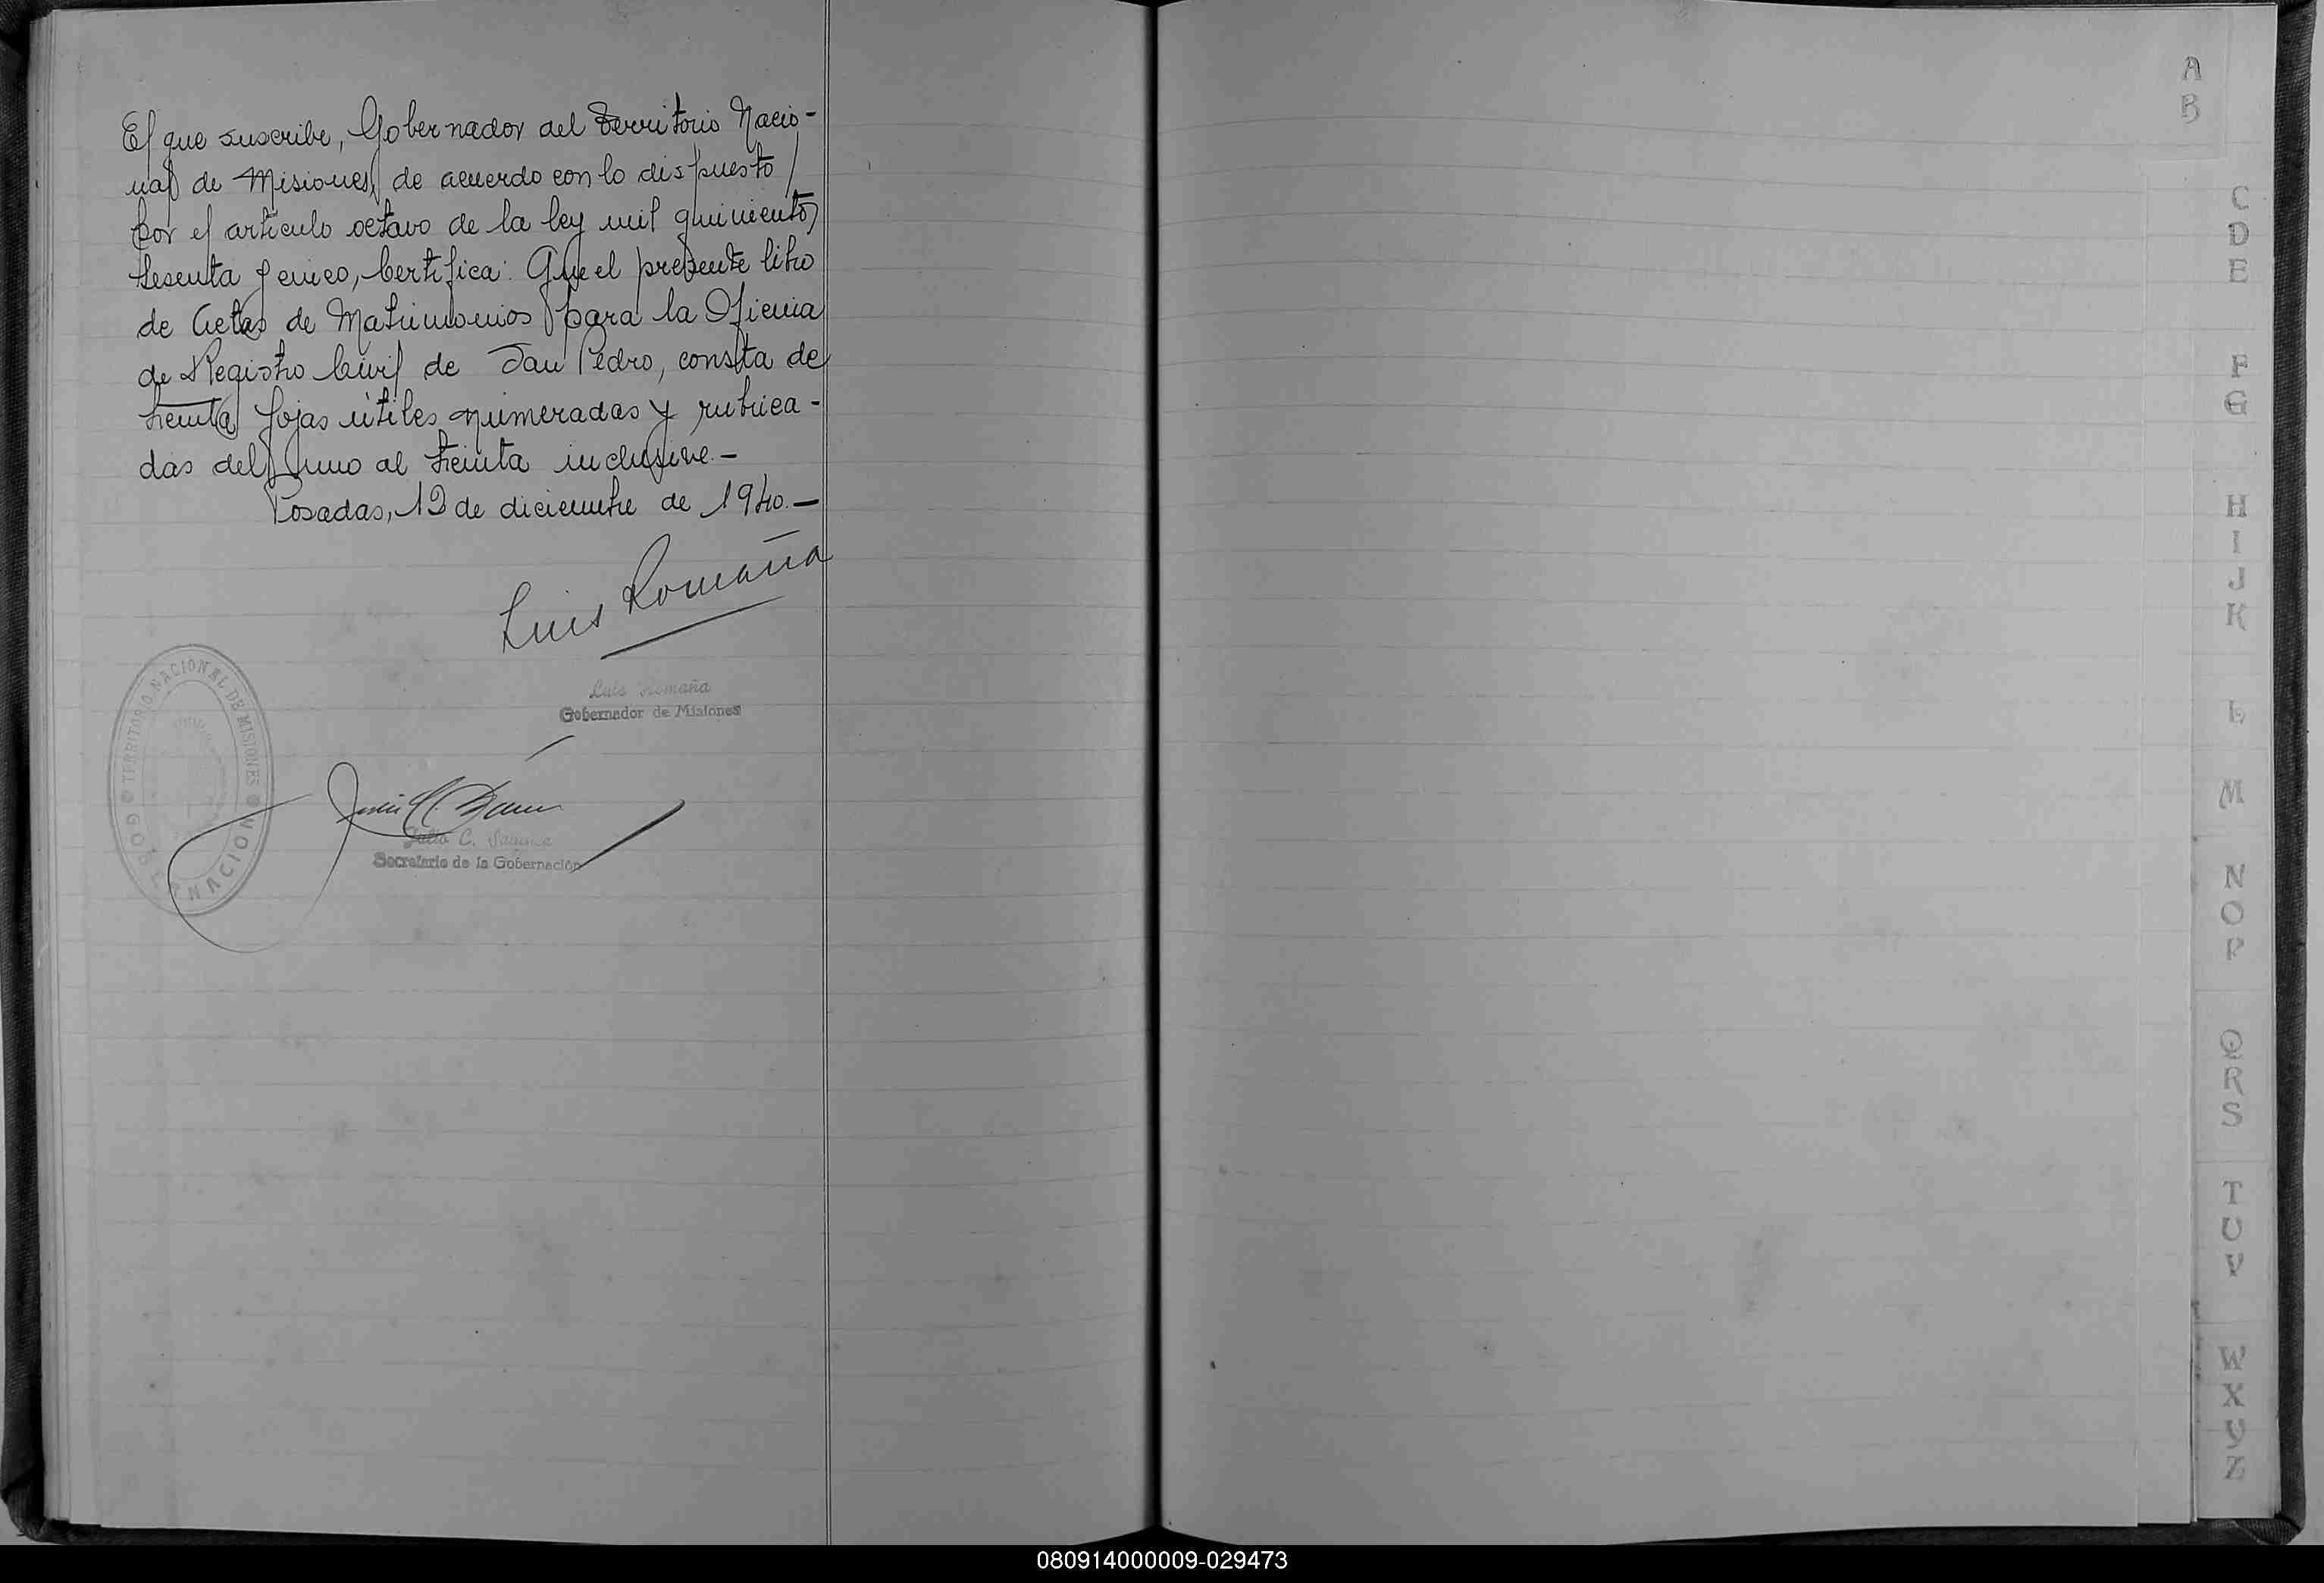 El que suscribe, Gobernador del Territorio Nacio-
nal de Misiones, de acuerdo con lo dispuesto
por el artículo octavo de la ley mil quinientos
sesenta y cinco, Certifica: Que el presente libro
de Actas de Matrimonios para la Oficina
de Registro Civil de San Pedro, consta de
treinta fojas útiles numeradas y rubrica-
das del uno al treinta inclusive.-
Posadas, 12 de diciembre de 1940.-
Luis Romaña
Luis Romaña
Gobernador de Misiones
TERRITORIO NACIONAL DE MISIONES
Julio C.
Secretario de la Gobernación
A
B
C
D
E
F
G
H
I
J
K
L
M
N
O
P
Q
R
S
T
U
V
W
X
Y
Z
080914000009-029473